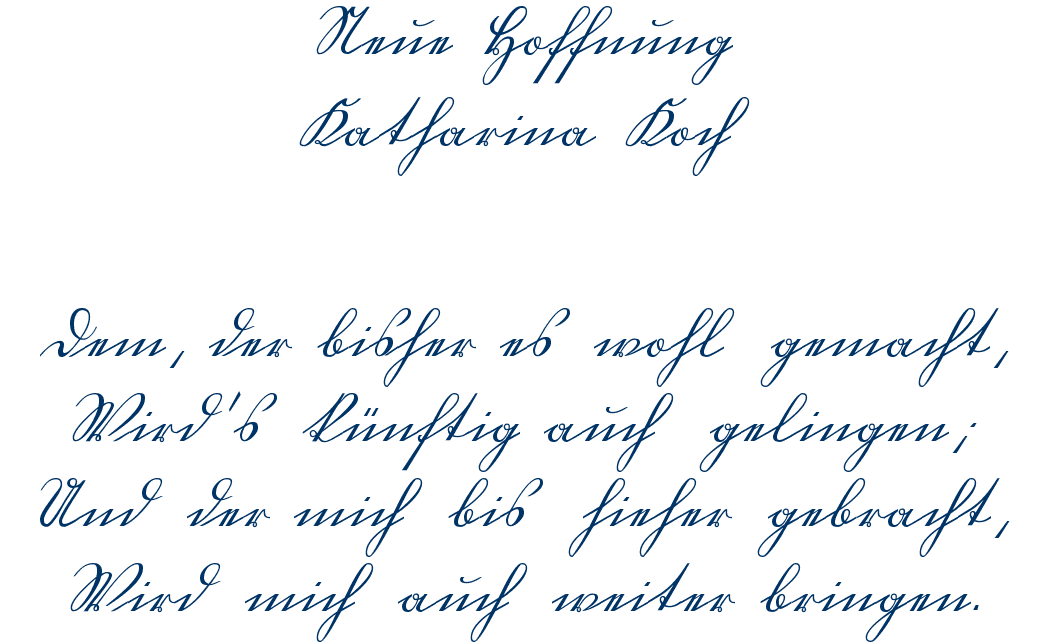 Neue Hoffnung
Katharina Koch
Dem, der bisher es wohl gemacht,
Wird's künftig auch gelingen;
Und der mich bis hieher gebracht,
Wird mich auch weiter bringen.